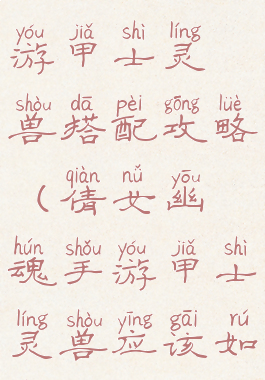 yóu jiǎ shì líng
游甲士灵
shòu dā pèi gōng lüè
兽搭配攻略
qiàn nǚ yōu
（倩女幽
hún shǒu yóu jiǎ shì
魂手游甲士
líng shòu yīng gāi rú
灵兽应该如